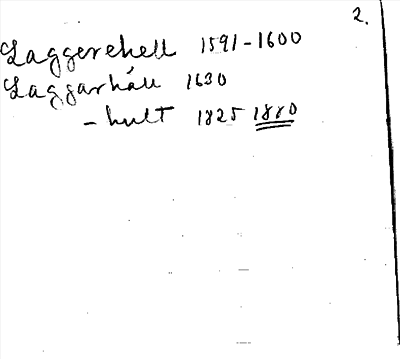 2.
Laggerehell 1591-1600
Laggarhåll 1630
- hult 1825 1880